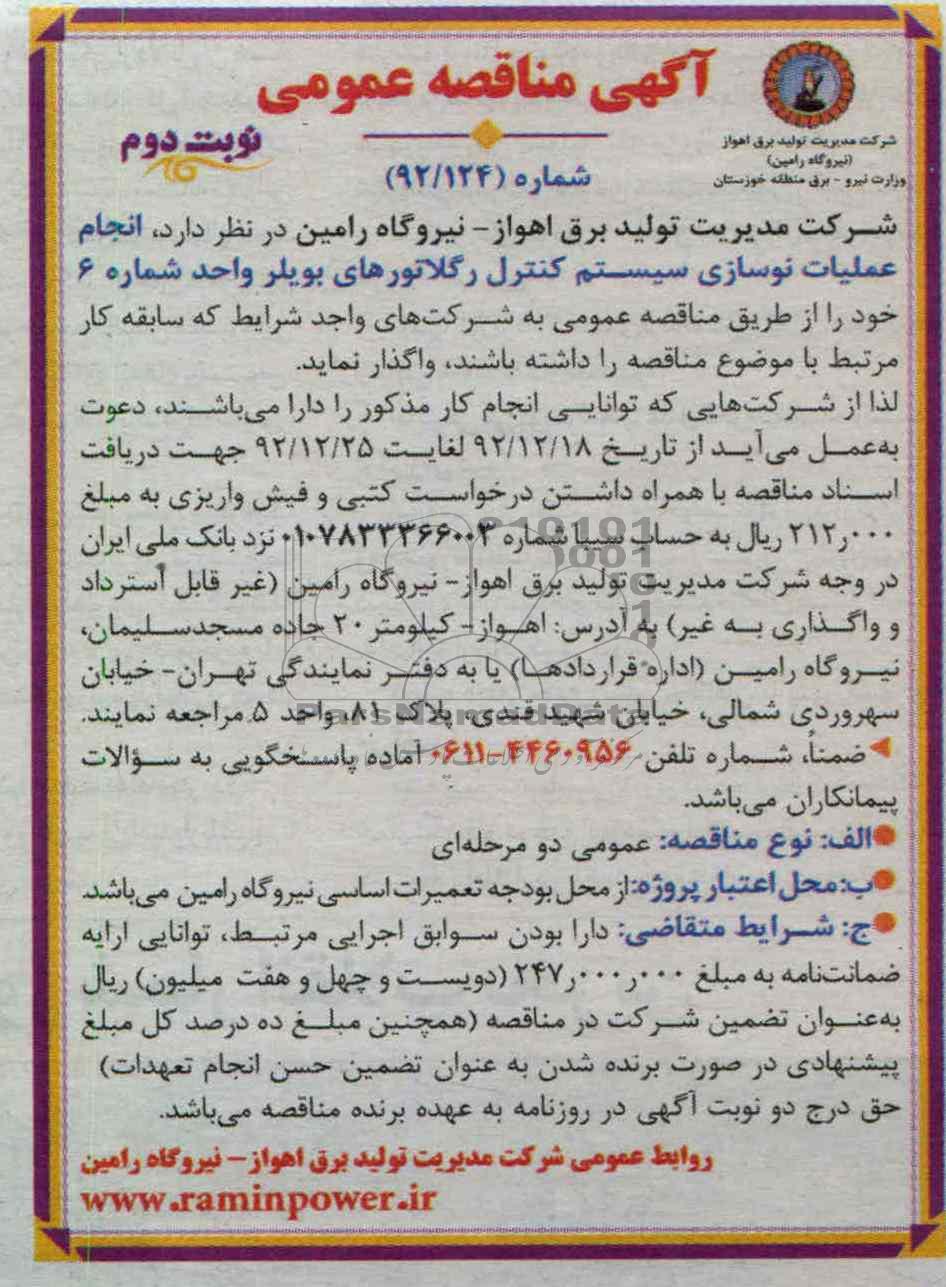 آگهی مناقصه عمومی
نوبت دوم
شماره (۹۲/۱۲۴)
شرکت مدیریت تولید برق اهواز
(نیروگاه رامین)
وزارت نیرو - برق منطقه خوزستان
شرکت مدیریت تولید برق اهواز- نیروگاه رامین در نظر دارد، انجام
عملیات نوسازی سیستم کنترل رگلاتورهای بویلر واحد شماره ۶
خود را از طریق مناقصه عمومی به شرکت‌های واجد شرایط که سابقه کار
مرتبط با موضوع مناقصه را داشته باشند، واگذار نماید.
لذا از شرکت‌هایی که توانایی انجام کار مذکور را دارا می‌باشند، دعوت
به‌عمل می‌آید از تاریخ ۹۲/۱۲/۱۸ لغایت ۹۲/۱۲/۲۵ جهت دریافت
اسناد مناقصه با همراه داشتن درخواست کتبی و فیش واریزی به مبلغ
۲۱۲ر۰۰۰ ریال به حساب سیبا شماره ۰۱۰۷۸۳۳۳۶۶۰۰۳ نزد بانک ملی ایران
در وجه شرکت مدیریت تولید برق اهواز- نیروگاه رامین (غیر قابل استرداد
و واگذاری به غیر) به آدرس: اهواز- کیلومتر ۲۰ جاده مسجدسلیمان،
نیروگاه رامین (اداره قراردادها) یا به دفتر نمایندگی تهران- خیابان
سهروردی شمالی، خیابان شهید قندی، پلاک ۸۱، واحد ۵ مراجعه نمایند.
ضمناً، شماره تلفن ۴۴۶۰۹۵۶-۰۶۱۱ آماده پاسخگویی به سؤالات
پیمانکاران می‌باشد.
الف: نوع مناقصه: عمومی دو مرحله‌ای
ب: محل اعتبار پروژه: از محل بودجه تعمیرات اساسی نیروگاه رامین می‌باشد.
ج: شرایط متقاضی: دارا بودن سوابق اجرایی مرتبط، توانایی ارایه
ضمانت‌نامه به مبلغ ۲۴۷ر۰۰۰ر۰۰۰ (دویست و چهل و هفت میلیون) ریال
به‌عنوان تضمین شرکت در مناقصه (همچنین مبلغ ده درصد کل مبلغ
پیشنهادی در صورت برنده شدن به عنوان تضمین حسن انجام تعهدات)
حق درج دو نوبت آگهی در روزنامه به عهده برنده مناقصه می‌باشد.
روابط عمومی شرکت مدیریت تولید برق اهواز- نیروگاه رامین
www.raminpower.ir
ParsNamadData